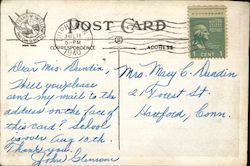 POST CARD
CORRESPONDENCE
ADDRESS
JUL 11
5-PM
1940
1 CENT 1
Dear Mrs. Dundin,
Will you please
send my mail to the
address on the face of
this card? School
is over Aug. 10th.
Thank you.
John
Mrs Mary C. Dundin
21 Forest St.
Hartford, Conn.